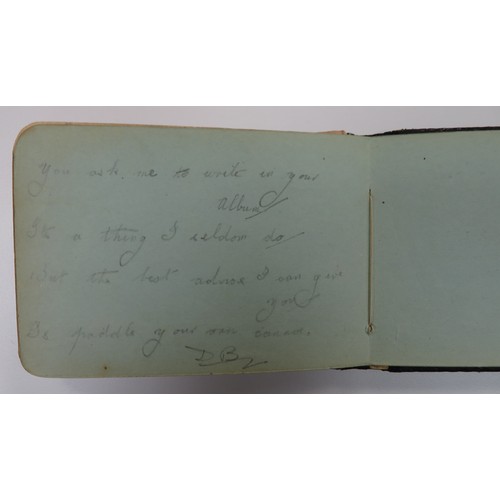 You ask me to write in your
Album
Its a thing I seldom do
But the best advice I can give
you
Is paddle your own canoe.
DB